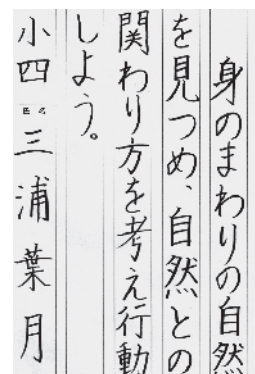 身のまわりの自然
を見つめ、自然との
関わり方を考え行動
しよう。
小四 氏名 三浦葉月